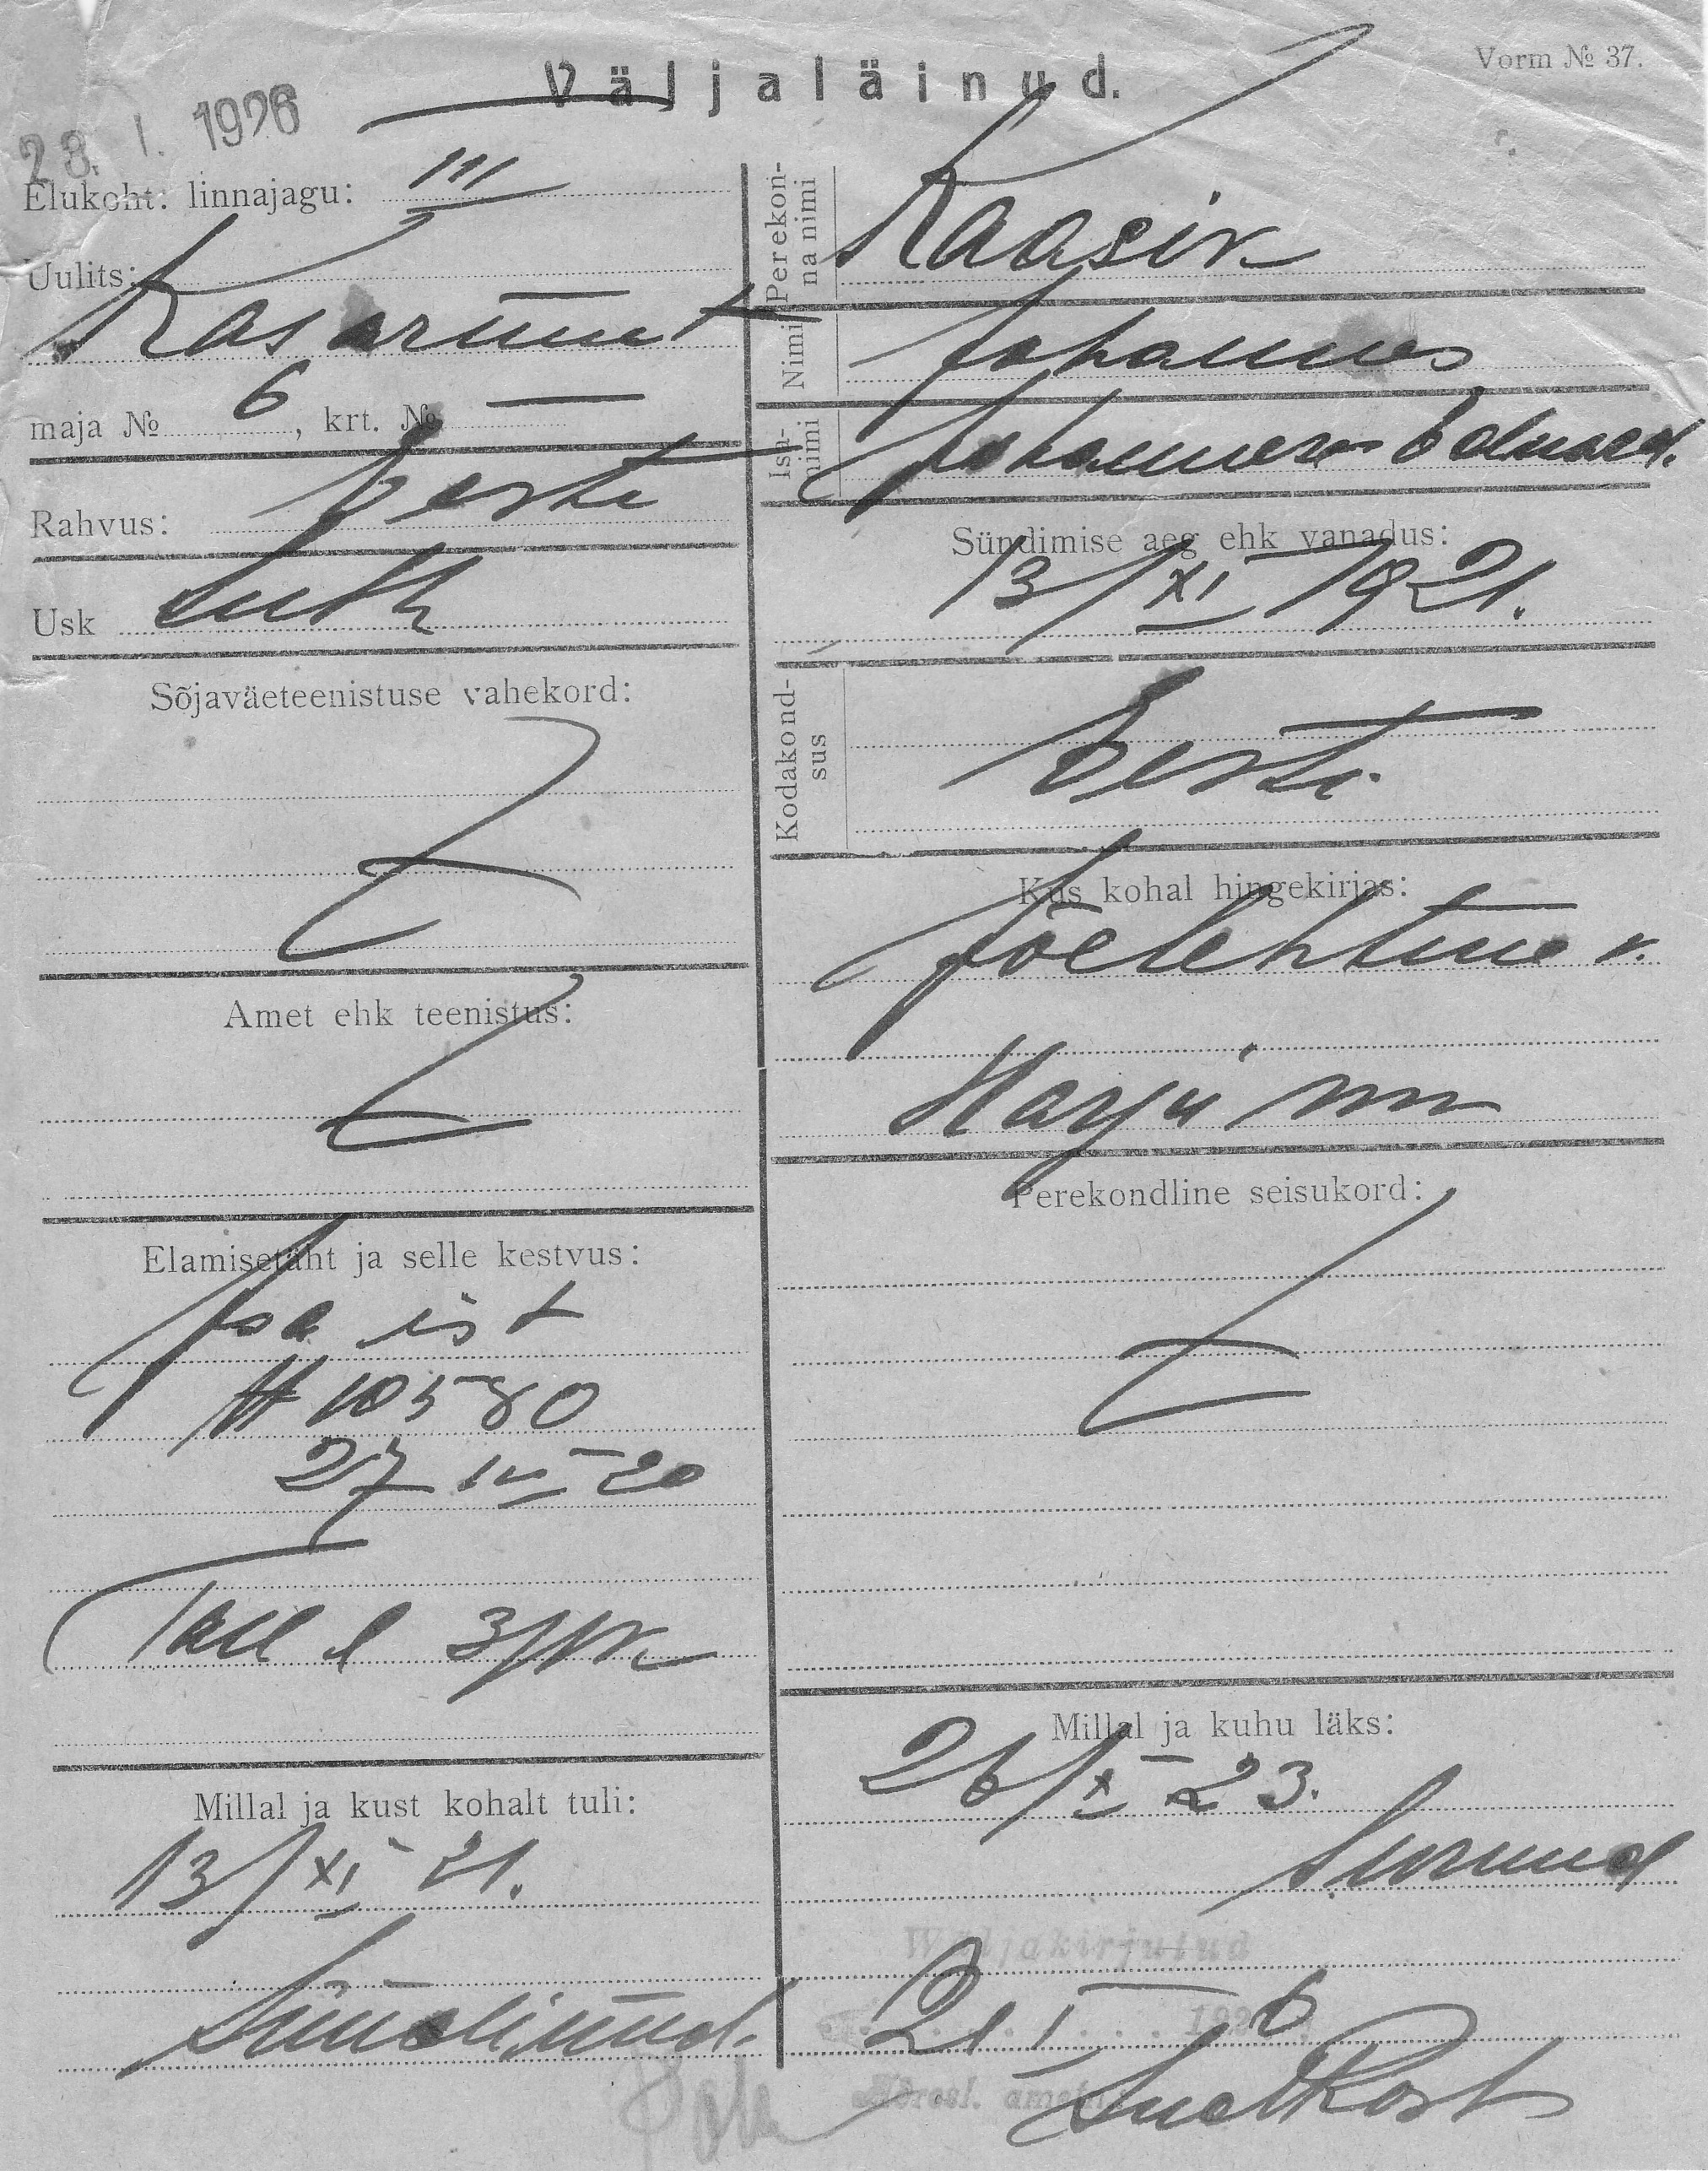 Väljaläinud.
Vorm № 37.
23. I. 1926
Elukoht: linnajagu: III
Uulits:
Kasarmu t
maja № 6, krt. № —
Rahvus: Eesti
Usk Luth
Sõjaväeteenistuse vahekord:
Amet ehk teenistus:
Elamisetäht ja selle kestvus:
Isa ist
A 10580
27 IV 20
Tall l 3 jsk
Millal ja kust kohalt tuli:
13/XI 21.
Sündinud.
Perekon-
na nimi
Kaasik
Nimi Johannes
Isa-
nimi
Johannes Eduard.
Sündimise aeg ehk vanadus:
13/XI 1921.
Kodakond-
sus
Eesti.
Kus kohal hingekirjas:
Jõelehtme v.
Harju mm
Perekondline seisukord:
Millal ja kuhu läks:
26/X 23.
Surnud
Wäljakirjutud
21 I 1926
Adressl. amet